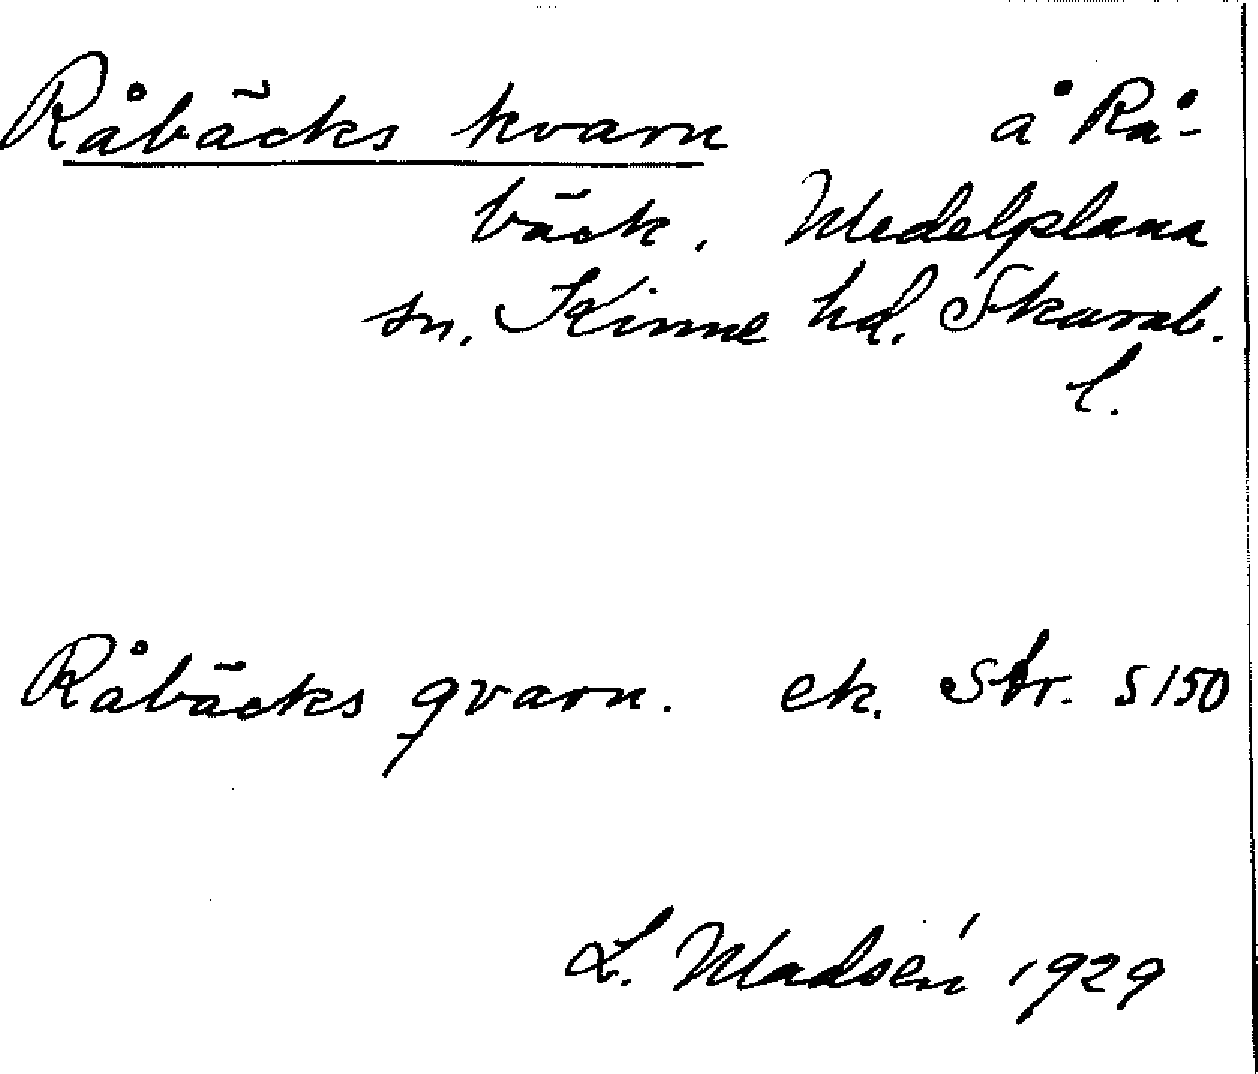 Råbäcks kvarn å Rå-
bäck, Medelplana
sn, Kinne hd, Skarab.
l.
Råbäcks qvarn. ek. Str. 5150
L. Madsén 1929